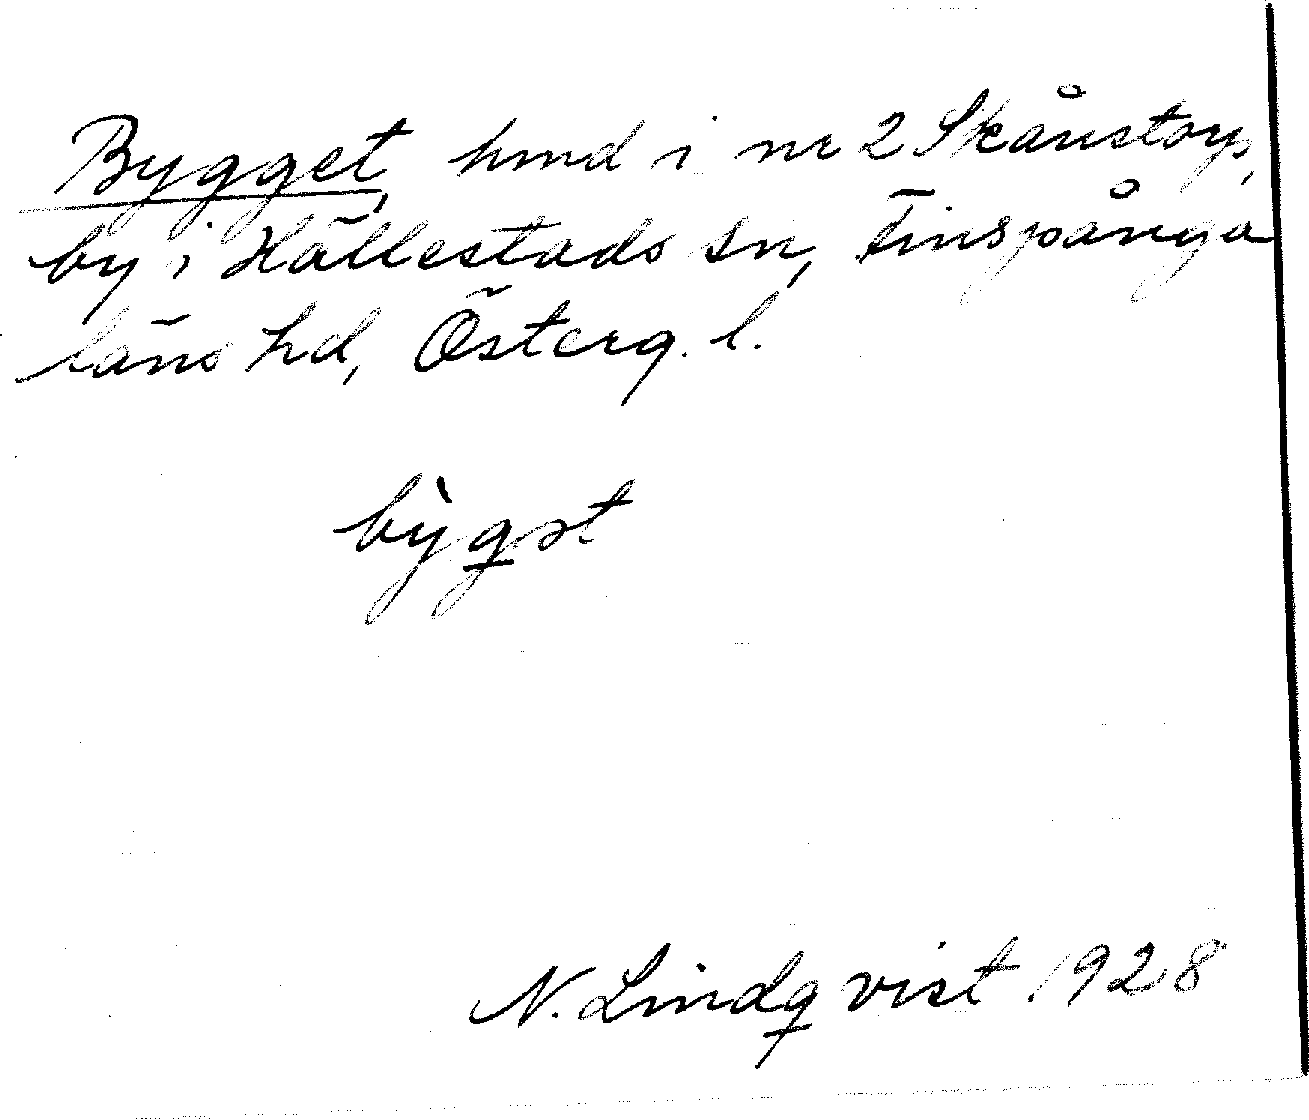 Bygget, hmd i nr 2 Skånstorps,
by i Hällestads sn, Finspånga
läns hd, Österg. l.
bỳgət
N. Lindqvist 1928